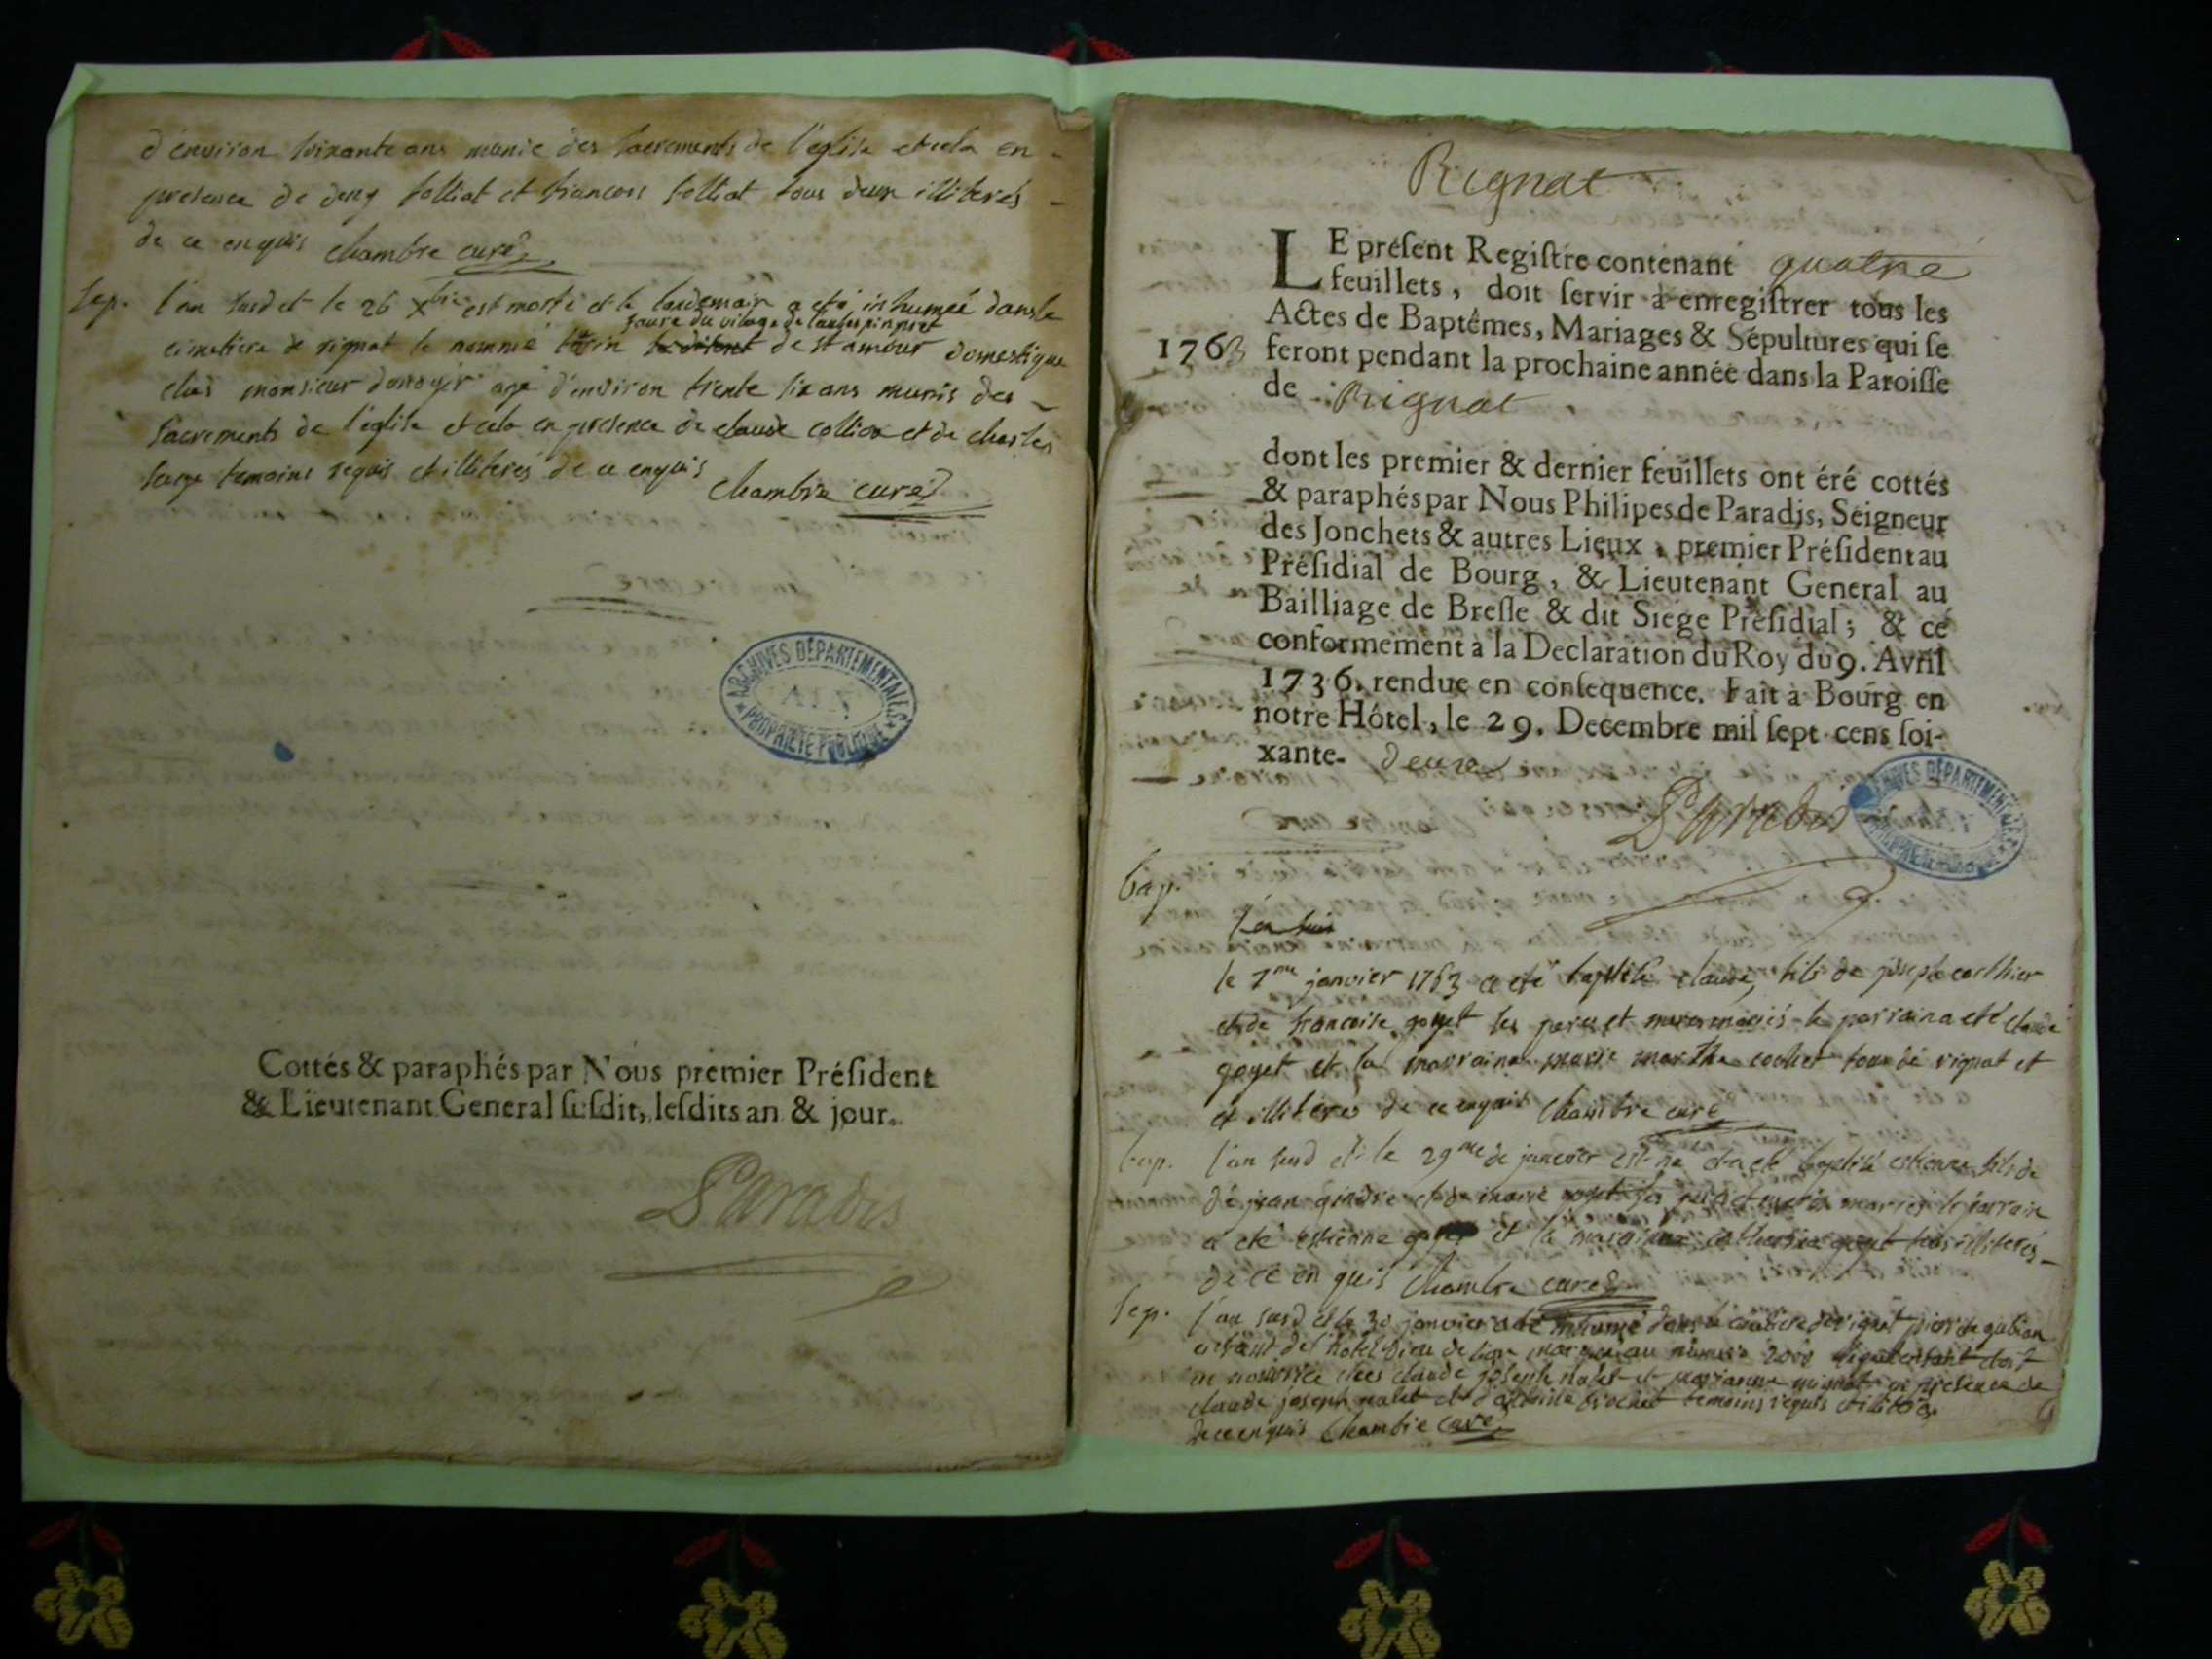 d'environ soixante ans munie des sacrements de l'église et cela en
presence de deny folliat et francois folliat tous deux illiterés
de ce enquis chambre curé
Sep. l'an susd et le 26 Xbre est morte et le lendemain a eté inhumeé dans le
faure du vilage de
cimetiere de rignat le nommé de st amour domestique
chés monsieur agé d'environ trente six ans munis des
sacrements de l'église et cela en presence de claude et de charles
temoins requis et illiterés de ce enquis chambre curé
ARCHIVES DÉPARTEMENTALES
AIN
PROPRIÉTÉ PUBLIQUE
Cottés & paraphés par Nous premier Préſident
& Lieutenant General ſuſdit, leſdits an & jour.
Paradis
Rignat
LE préſent Regiſtre contenant quatre
feuillets, doit ſervir à enregiſtrer tous les
Actes de Baptêmes, Mariages & Sépultures qui ſe
1763 feront pendant la prochaine année dans la Paroiſſe
de Rignat
dont les premier & dernier feuillets ont éré cottés
& paraphés par Nous Philipes de Paradis, Seigneur
des Jonchets & autres Lieux, premier Préſident au
Préſidial de Bourg, & Lieutenant General au
Bailliage de Breſſe & dit Siege Préſidial ; & ce
conformement à la Declaration du Roy du 9. Avril
1736. rendue en conſequence. Fait à Bourg en
notre Hôtel, le 29. Decembre mil ſept cens ſoi-
xante- deux
Paradis
ARCHIVES DÉPARTEMENTALES
bap.
le 7me janvier 1763 a eté baptisé claude, fils de joseph
et de francoise goyet ses pere et mere mariés le parrain a eté claude
goyet et la marraine marie marthe tous de rignat et
et illiterés de ce enquis Chambre curé
bap. l'an susd et le 29me de janvier est né et a eté baptisé estienne fils de
de jean et de marie goyet ses pere et mere mariés le parrain
a eté estienne goyet et la marraine goyet tous illiterés
de ce enquis Chambre curé
Sep. l'an susd et le 30 janvier a eté inhumé dans le cimetiere de rignat pierre
enfant de l'hotel dieu de lion marqué au numero lequel enfant etoit
en nourrice chés claude joseph et marianne en presence de
claude joseph et d' temoins requis et illiterés
de ce enquis Chambre curé